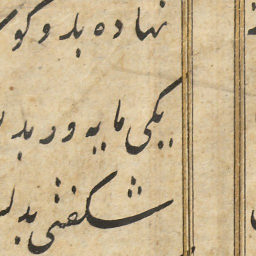 نهاده بدو کو
یکی مایه ور بد
شکفتی بد